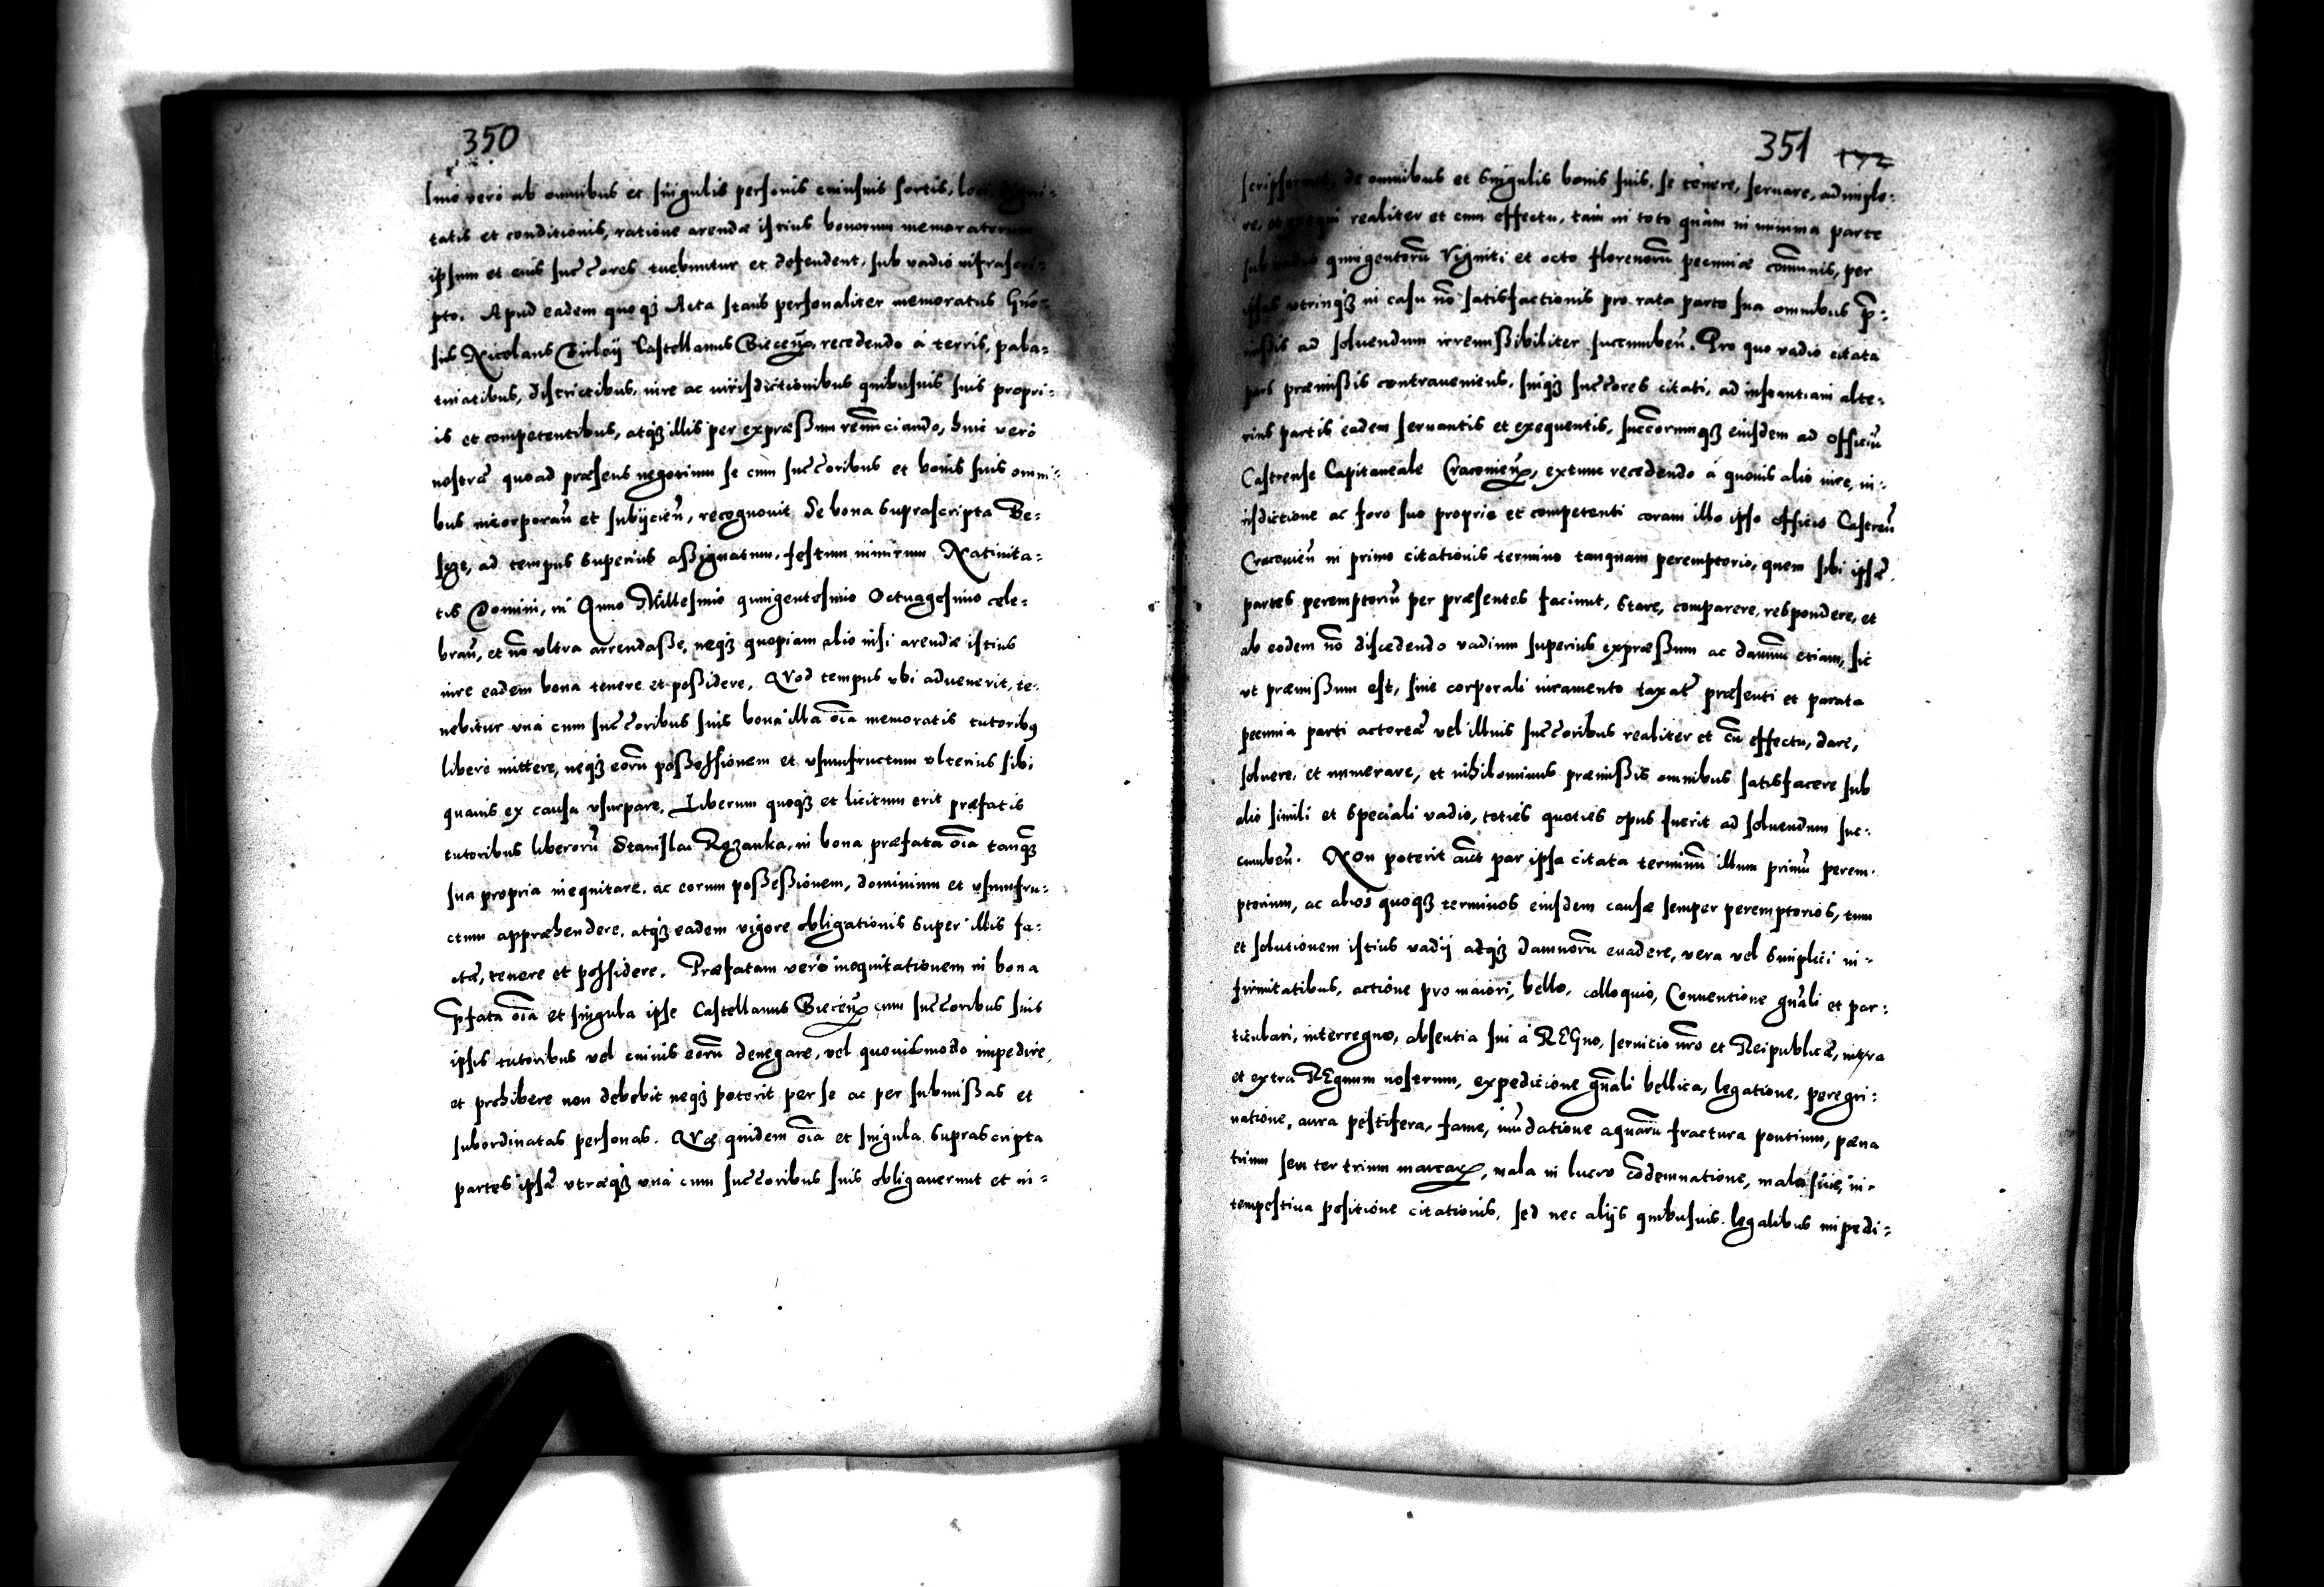 350
Imo vero ab omnibus et singulis personis cuiusuis sortis, loci, digni-
tatis et conditionis, ratione arendæ istius bonorum memoratorum
ipsum et eius succ̃ores tuebuntur et defendent, sub vadio infrascri-
pto. Apud eadem quoqꝫ Acta stans personaliter memoratus Gñō-
sus Nicolaus Firleÿ Castellanus Bieceñ, recedendo á terris, pala-
tinatibus, districtibus, iure ac iurisdictionibus quibusuis suis propri-
is et competentibus, atqꝫ illis per expræßum renūciando, huic vero
nostræ quoad præsens negotium se cum succ̃oribus et bonis suis omni-
bus incorporañ et subÿcieñ, recognouit se bona suprascripta Be-
, ad tempus superius aßignatum, festum nimirum Natiuita-
tis Domini, in Anno Millesimo quingentesimo Octuagesimo cele-
brañ, et nõ vltra arrendaße, neqꝫ quopiam alio nisi arendæ istius
iure eadem bona tenere et poßidere. Quod tempus vbi aduenerit, te-
nebitur vná cum succ̃oribus suis bona illa oĩa memoratis tutoribꝰ
libere mittere, neqꝫ eorũ poßessionem et vsumfructum vlterius sibi
quauis ex causa vsurpare. Liberum quoqꝫ et licitum erit præfatis
tutoribus liberorũ Stanislai Rzanka, in bona præfata oĩa tanqꝫ
sua propria inequitare, ac eorum poßeßionem, dominium et vsumfru-
ctum appræhendere, atqꝫ eadem vigore obligationis super illis fa-
ctæ, tenere et possidere. Præfatam vero inequitationem in bona
p̃fata oĩa et singula ipse Castellanus Bieceñ cum succ̃oribus suis
ipsis tutoribus vel cuiuis eorũ denegare, vel quouismodo impedire,
et prohibere non debebit neqꝫ poterit per se ac per submißas et
subordinatas personas. Quæ quidem oĩa et singula suprascripta
partes ipsæ vtræqꝫ vná cum succ̃oribus suis obligauerunt et in-
351 172
scripserunt, de omnibus et singulis bonis suis, se tenere, seruare, adimple-
re, et exequi realiter et cum effectu, tam in toto quàm in minima parte
sub vadio quingentorũ viginti et octo florenorũ pecuniæ cõmunis, per
ipsas vtrinqꝫ in casu nõ satisfactionis pro rata parte sua omnibus p̃-
mißis ad soluendum irremißibiliter succumbeñ. Pro quo vadio citata
pars præmißis contraueniens, suiqꝫ succ̃ores citati, ad instantiam alte-
rius partis eadem seruantis et exequentis, succ̃orumqꝫ eiusdem ad officiũ
Castrense Capitaneale Cracouieñ, extunc recedendo á quouis alio iure, iu-
risdictione ac foro suo proprio et competenti coram illo ipso officio Castreñ
Cracouieñ in primo citationis termino tanquam peremptorio, quem sibi ipsæ
partes peremptoriũ per præsentes faciunt, stare, comparere, respondere, et
ab eodem nõ discedendo vadium superius expræßum ac damnũ etiam, sic
vt præmißum est, sine corporali iuramento taxat̃ præsenti et parata
pecunia parti actoreæ vel illius succ̃oribus realiter et cũ effectu, dare,
soluere, et numerare, et nihilominus præmißis omnibus satisfacere sub
alio simili et speciali vadio, toties quoties opus fuerit ad soluendum suc-
cumbeñ. Non poterit aũt par ipsa citata terminũ illum primũ perem-
ptorium, ac alios quoqꝫ terminos eiusdem causæ semper peremptorios, tum
et solutionem istius vadÿ atqꝫ damnorũ euadere, vera vel simplici in-
firmitatibus, actione pro maiori, bello, colloquio, Conuentione gñali et par-
ticulari, interregno, absentia sui á REGno, seruitio ñro et Reipublicæ, intra
et extra REgnum nostrum, expeditione gñali bellica, legatione, peregri-
natione, aura pestifera, fame, inũdatione aquarũ fractura pontium, pæna
trium seu ter trium marcaꝝ, mala in lucro cõdemnatione, mala siue, in-
tempestiua positione citationis, sed nec alÿs quibusuis legalibus impedi-